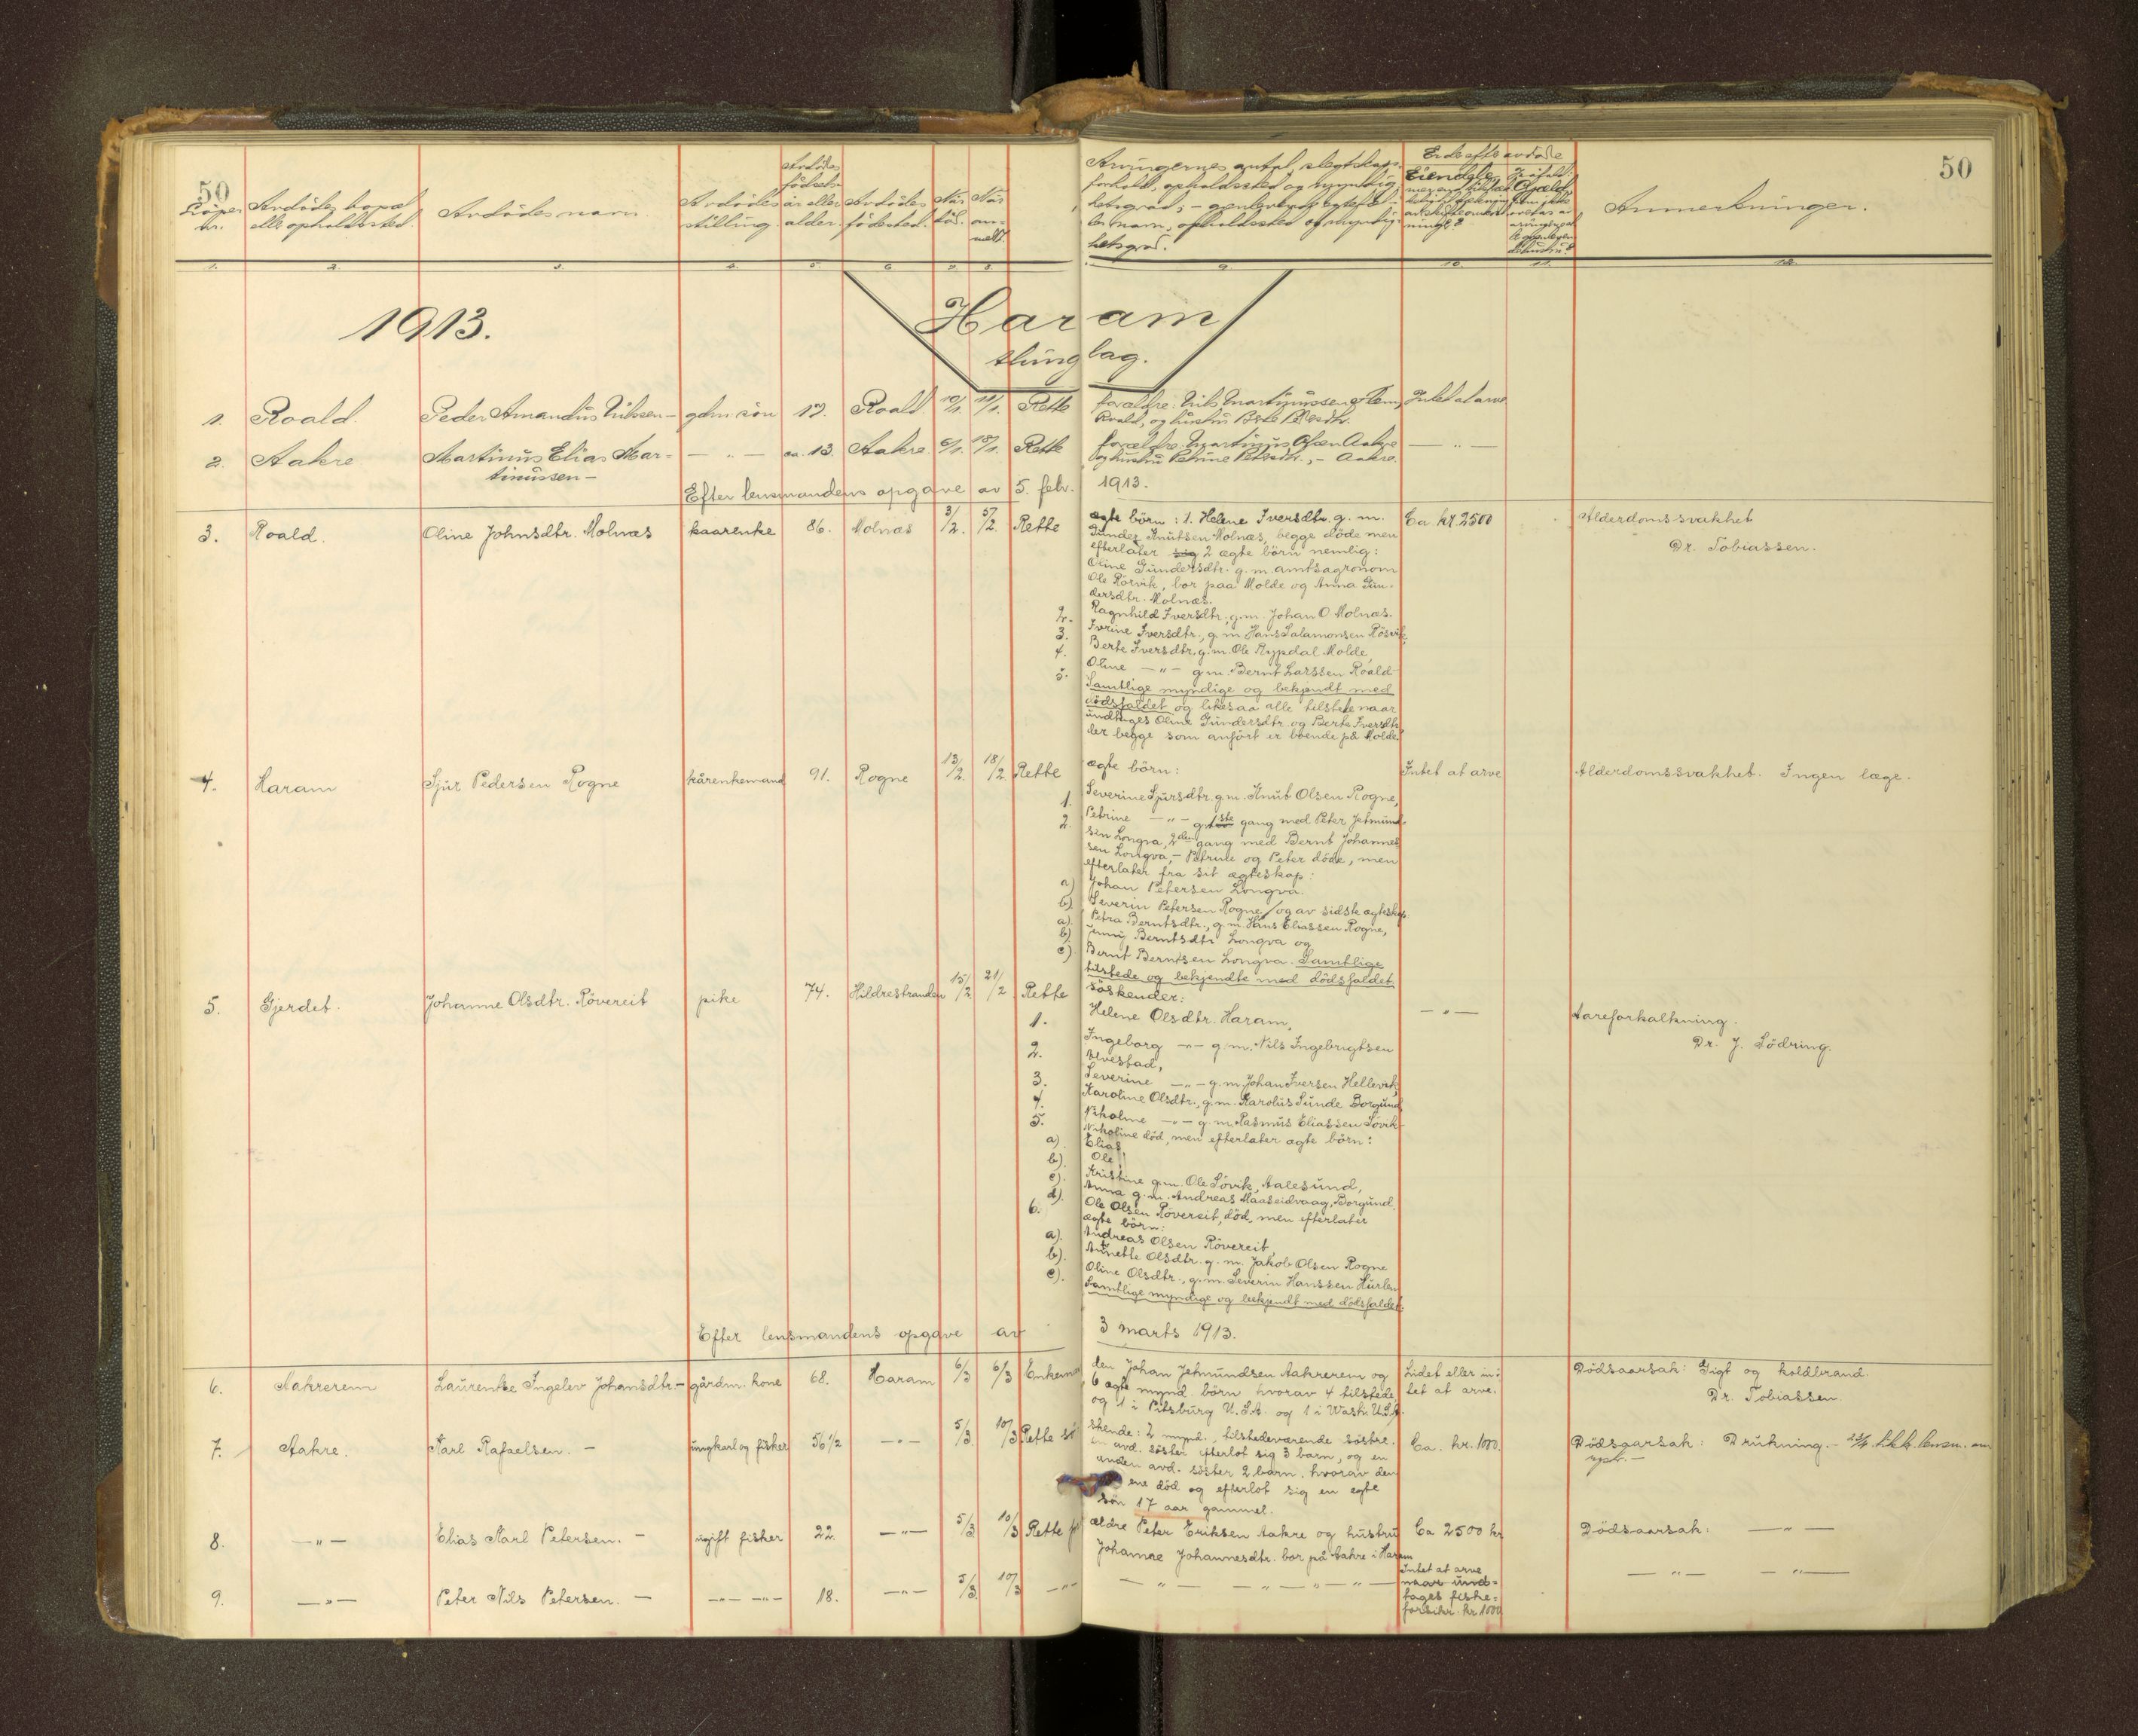 50
50
Löpenr.
Avdödes bopæl
eller opholdssted.
Avdödes navn
Avdödes
stilling.
Avdödes
födsels-
år eller
alder.
Avdödes
födested.
Når
död.
Når
an-
meldt.
Arvingernes antal, slegtskaps-
forhold, opholdssted og myndig-
hetsgrad; – gjenlevende egtefæl-
les navn, opholdssted og myndig-
hetsgrad.
Er der efter avdöde
Eiendele,
Gjæld,
Anmerkninger.
1. 2. 3. 4. 5. 6. 7. 8. 9. 10. 11. 12.
1913.
Haram
thinglag.
1. Roald. Peder Amandus Nilssen – gdm. sön 17. Roald 10/1. 11/1. Rette forældre: Nils Martinussen Flem, Intet at arve
Roald, og hustru Berte Pedersdtr.
2. Aakre Martinus Elias Mar= — " — ca. 13. Aakre. 6/1. 18/1. Rette forældre: Martinus Olsen Aakre — " —
tinussen – og hustru Petrine Petersdtr., – Aakre.
Efter lensmandens opgave av 5. febr. 1913.
3. Roald. Oline Johnsdtr. Molnæs kaarenke 86. Molnæs 3/2. 5/2. Rette ægte börn: 1. Helene Iversdtr. g. m. Ca kr. 2500 Alderdomssvakhet
Gunder Knutsen Molnæs, begge döde men Dr. Tobiassen.
efterlater sig 2 ægte börn nemlig:
Oline Gundersdtr. g. m. amtsagronom
Ole Rörvik, bor paa Molde og Anna Gun-
dersdtr. Molnæs.
2. Ragnhild Iversdtr., g. m. Johan O. Molnæs.
3. Iverine Iversdtr., g. m. Hans Salamonsen Rösvik,
4. Berte Iversdtr. g. m. Ole Rypdal Molde,
5. Oline — " — g. m. Bernt Larssen Roald
Samtlige myndige og bekjendt med
dödsfaldet og likesaa alle tilstede naar
undtages Oline Gundersdtr. og Berte Iversdtr.
der begge som anfört er boende på Molde.
4. Haram Sjur Pedersen Rogne kårenkemand 91. Rogne 13/2. 18/2 Rette ægte börn: Intet at arve Alderdomssvakhet. Ingen læge.
1. Severine Sjursdtr. g. m. Knut Olsen Rogne,
2. Petrine — " — g. 1ste gang med Peter Jetmund-
sen Longva, 2den gang med Bernt Johannes-
sen Longva, – Petrine og Peter döde, men
efterlater fra sit ægteskap:
a) Johan Petersen Longva.
b) Severin Petersen Rogne / og av sidste ægteskap.
a). Petra Berntsdtr., g. m. Hans Eliassen Rogne,
b) Jenny Berntsdtr Longva og
c) Bernt Berntsen Longva. Samtlige
tilstede og bekjendte med dödsfaldet.
5. Gjerdet. Johanne Olsdtr. Rövereit pike 74. Hildrestranden 15/2. 21/2 Rette söskender: — " — Aareforkalkning.
1. Helene Olsdtr. Haram, Dr. J. Södring.
2. Ingeborg — " — g. m. Nils Ingebrigtsen
Ulvestad,
3. Severine — " — g. m. Johan Iversen Hellevik,
4. Karoline Olsdtr., g. m. Karolus Sunde Borgund,
5. Nikoline — " — g. m. Rasmus Eliassen Sövik
Nikoline död, men efterlater ægte börn:
a). Elias
b). Ole
c). Kristine g. m. Ole Sövik, Aalesund,
d). Anna g. m. Andreas Maaseidvaag, Borgund.
6. Ole Olsen Rövereit, död, men efterlater
ægte börn:
a). Andreas Olsen Rövereit,
b). Annette Olsdtr. g. m. Jakob Olsen Rogne
c). Oline Olsdtr., g. m. Severin Hanssen Hurlen
Samtlige myndige og bekjendt med dödsfaldet.
Efter lensmandens opgave av 3 marts 1913.
6. Aakrerem Laurentse Ingelev Johansdtr.– gårdm. kone 68. Haram 6/3 6/3 Enkeman den Johan Jetmundsen Aakrerem og Lidet eller in= Dödsaarsak: Gigt og koldbrand.
6 ægte mynd. börn hvorav 4 tilstede tet at arve. Dr. Tobiassen.
og 1 i Pitsburg U.S.A. og 1 i Wash. U.S.A.
7. Aakre. Karl Rafaelsen. – ungkarl og fisker 56 1/2 — " — 5/3. 10/3 Rette sö skende: 2 mynd., tilstedeværende söstre. Ca. kr. 1000. Dödsaarsak: Drukning. –
en avd. söster efterlot sig 3 barn, og en
anden avd. söster 2 barn, hvorav den
ene död og efterlot sig en ægte
sön 17 aar gammel.
8. — " — Elias Karl Petersen. – ugift fisker 22. — " — 5/3 10/3 Rette for ældre Peter Eriksen Aakre og hustru Ca 2500 kr Dödsaarsak: — " —
Johanne Johannesdtr. bor på Aakre i Haram
9. — " — Peter Nils Petersen. – — " — — " — 18. — " — 5/3. 10/3 — " — — " — — " — " — " — Intet at arve — " — — " —
naar und=
tages fiske=
forsikr. kr. 1000